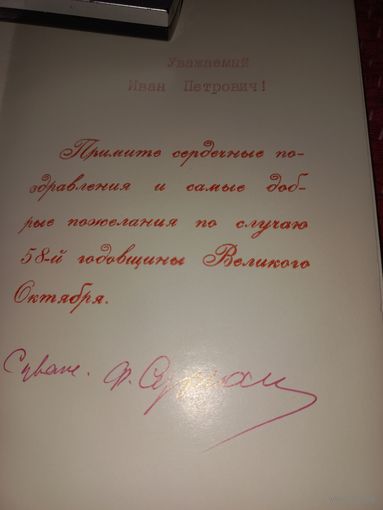 Уважаемый
Иван Петрович!
Примите сердечные по-
здравления и самые доб-
рые пожелания по случаю
58-й годовщины Великого
Октября.
С уваж. Ф. Сурган